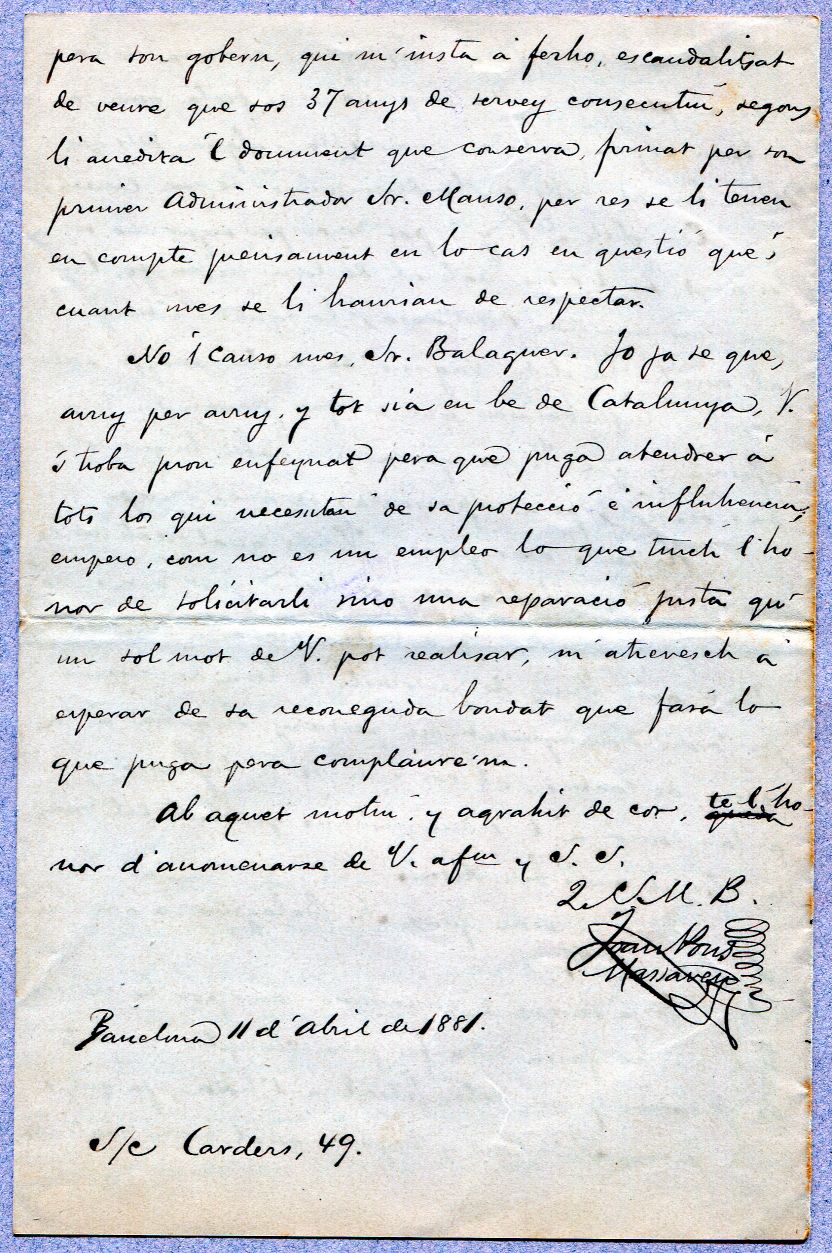 pera son gobern, qui m'insta á ferho, escandalisat
de veure que sos 37 anys de servey consecutiu, segons
li acredita 'l document que conserva, firmat per son
primer Administrador Sr. Manso, per res se li tenen
en compte precisament en lo cas en questió que 's
cuant mes se li haurian de respectar.
No 'l canso mes, Sr. Balaguer. Jo ja se que,
avuy per avuy, y tot sia en be de Catalunya, V.
's troba prou enfeynat pera que puga atendrer á
tots los qui necesitan de sa protecció é influhencia;
empero, com no es un empleo lo que tinch l'ho-
nor de solicitarli sino una reparació justa qu'
un sol mot de V. pot realisar, m'atrevesch á
esperar de sa reconeguda bondat que fará lo
que puga pera complaure'm.
Ab aquet motiu, y agrahit de cor, te l'ho-
nor d'anomenarse de V. afm y S. S.
Q. S. M. B.
Joan Pons
Massaveu
Barcelona 11 d'Abril de 1881.
S/c Carders, 49.